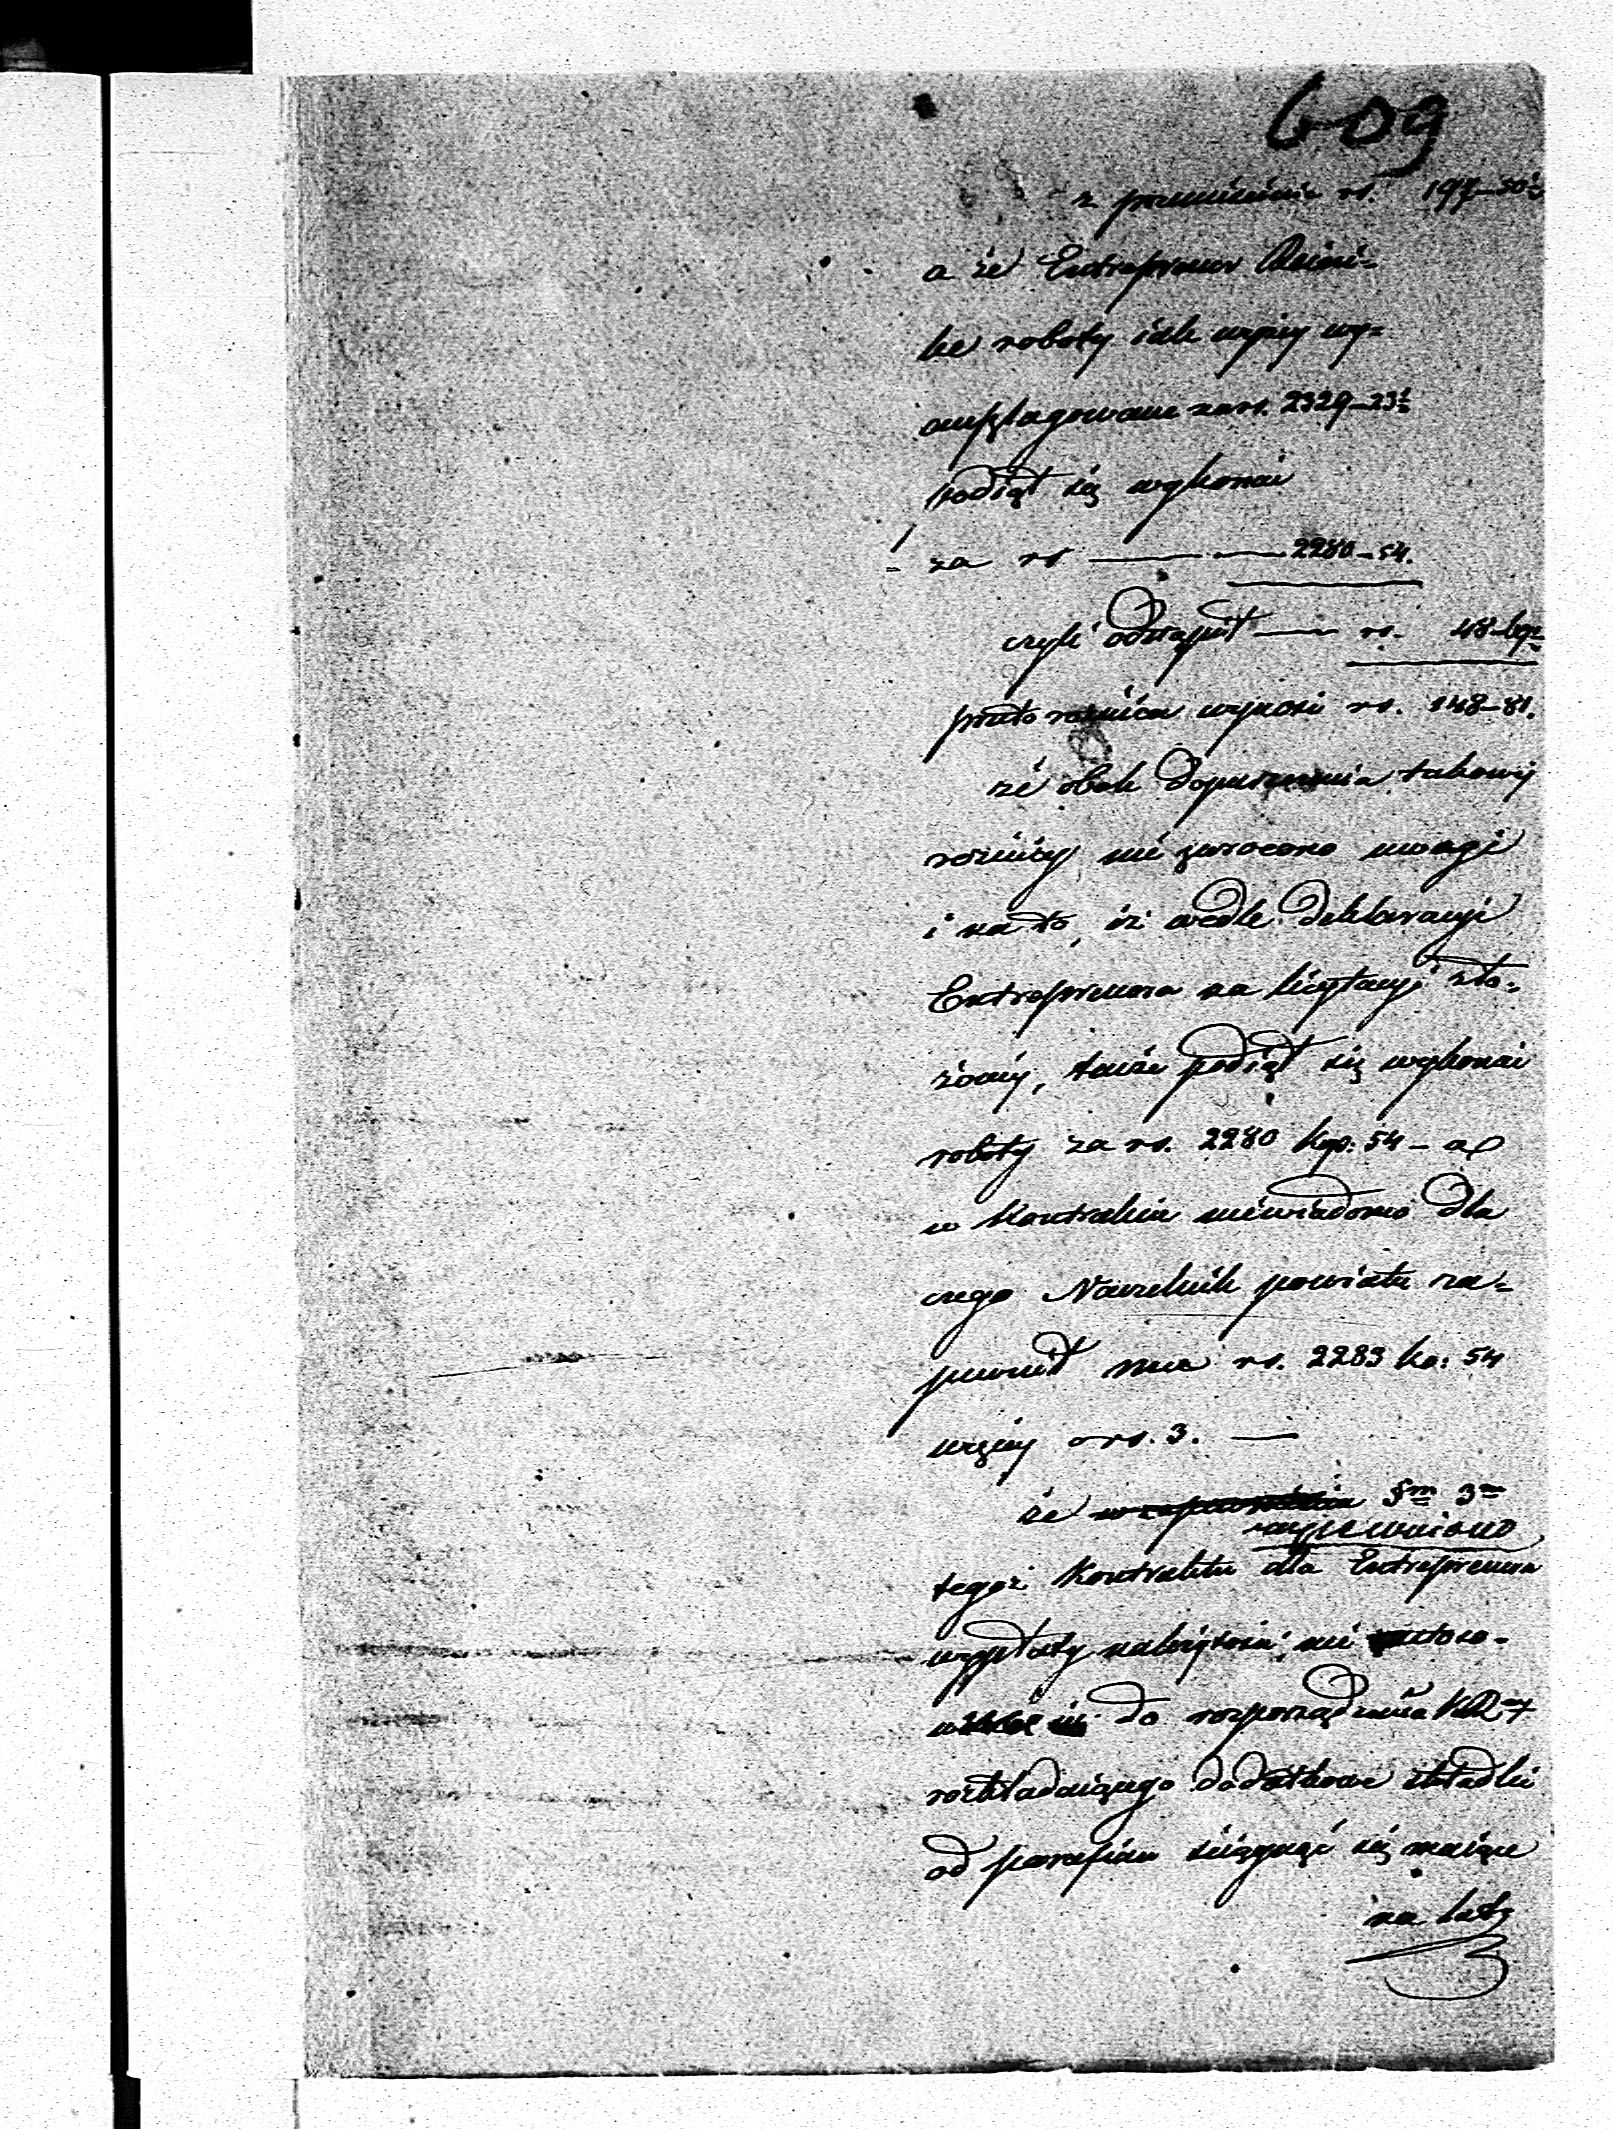 609
z przeniesienia rs. 197–50½
a że Entreprener Reini=
ke roboty iak wyżej wy=
anszlagowane za rs. 2329–23½
podiął się wykonai
za rs — — 2280–54.
czyli odstąpił — rs. 48–69½
przeto roznica wynosi rs. 148–81.
że obok dopuszczenia takowej
roznicy nie zwrocono uwagi
i na to, iż wedle deklaracyi
Entreprenera na licytacyi zło=
żonej, tenże podiął się wykonai
roboty za rs. 2280 kop: 54 – a
w Kontrakcie niewiadomo dla
czego Naczelnik powiatu za=
pewnił mu rs. 2283 ko: 54
więcej o rs. 3. —
że w zapewnienia §m 3m
zapewniono
tegoż Kontraktu dla Entreprenera
wypłaty należytości nie
do rozporządzenia
rozkładaiącego dodatkowe składki
od parafian ściągnąć się maiące
na lat